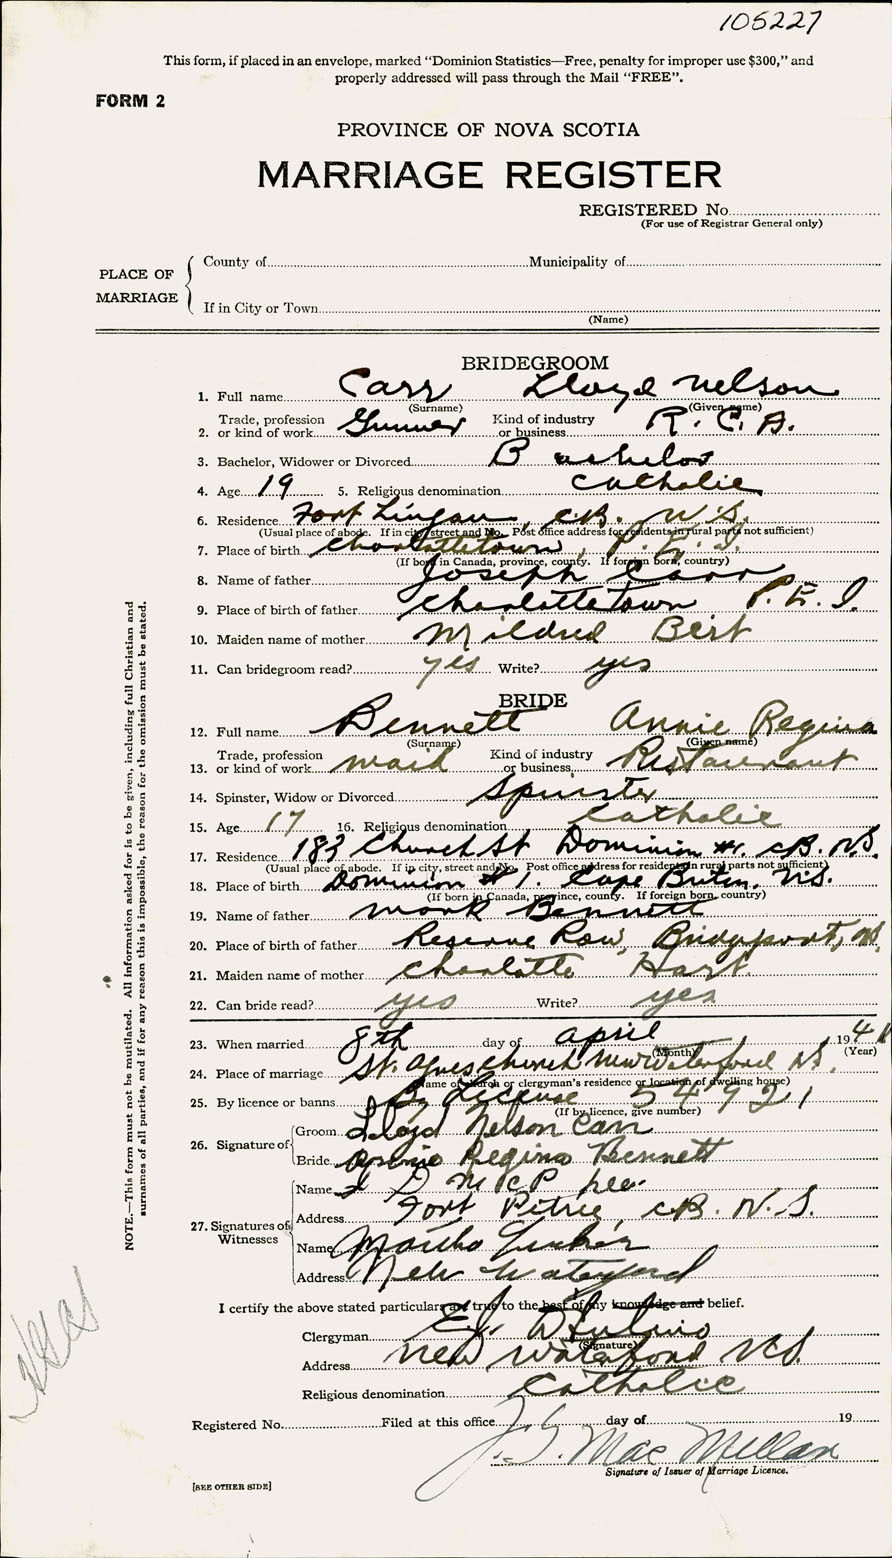 105227
This form, if placed in an envelope, marked “Dominion Statistics—Free, penalty for improper use $300,” and
properly addressed will pass through the Mail “FREE”.
FORM 2
PROVINCE OF NOVA SCOTIA
MARRIAGE REGISTER
REGISTERED No.
(For use of Registrar General only)
PLACE OF MARRIAGE
County of Municipality of
If in City or Town
(Name)
BRIDEGROOM
1. Full name Carr Lloyd Nelson
(Surname) (Given name)
2. Trade, profession or kind of work Gunner Kind of industry or business R. C. A.
3. Bachelor, Widower or Divorced Bachelor
4. Age 19 5. Religious denomination Catholic
6. Residence Fort Lingan, C.B. N.S.
(Usual place of abode. If in city, street and No. Post office address for residents in rural parts not sufficient)
7. Place of birth Charlottetown, P.E.I.
(If born in Canada, province, county. If foreign born, country)
8. Name of father Joseph Carr
9. Place of birth of father Charlottetown P.E.I.
10. Maiden name of mother Mildred
11. Can bridegroom read? yes Write? yes
BRIDE
12. Full name Bennett Annie Regina
(Surname) (Given name)
13. Trade, profession or kind of work maid Kind of industry or business Restaurant
14. Spinster, Widow or Divorced Spinster
15. Age 17 16. Religious denomination Catholic
17. Residence 183 Church St Dominion #1. C.B. N.S.
(Usual place of abode. If in city, street and No. Post office address for residents in rural parts not sufficient)
18. Place of birth Dominion #1. Cape Breton, N.S.
(If born in Canada, province, county. If foreign born, country)
19. Name of father Mark Bennett
20. Place of birth of father Reserve Row, Bridgeport, N.S.
21. Maiden name of mother Charlotte Hart
22. Can bride read? yes Write? yes
23. When married 8th day of April 194
(Month) (Year)
24. Place of marriage St. Agnes Church New Waterford N.S.
(Name of church or clergyman’s residence or location of dwelling house)
25. By licence or banns By License 54921
(If by licence, give number)
26. Signature of
Groom Lloyd Nelson Carr
Bride Annie Regina Bennett
27. Signatures of Witnesses
Name
Address Fort Petrie, C.B. N.S.
Name Martha
Address New Waterford
I certify the above stated particulars are true to the best of my knowledge and belief.
Clergyman
(Signature)
Address New Waterford N.S.
Religious denomination Catholic
Registered No. Filed at this office day of 19
J. G. MacMillan
Signature of Issuer of Marriage Licence.
[SEE OTHER SIDE]
NOTE.—This form must not be mutilated. All information asked for is to be given, including full Christian and
surnames of all parties, and if for any reason this is impossible, the reason for the omission must be stated.